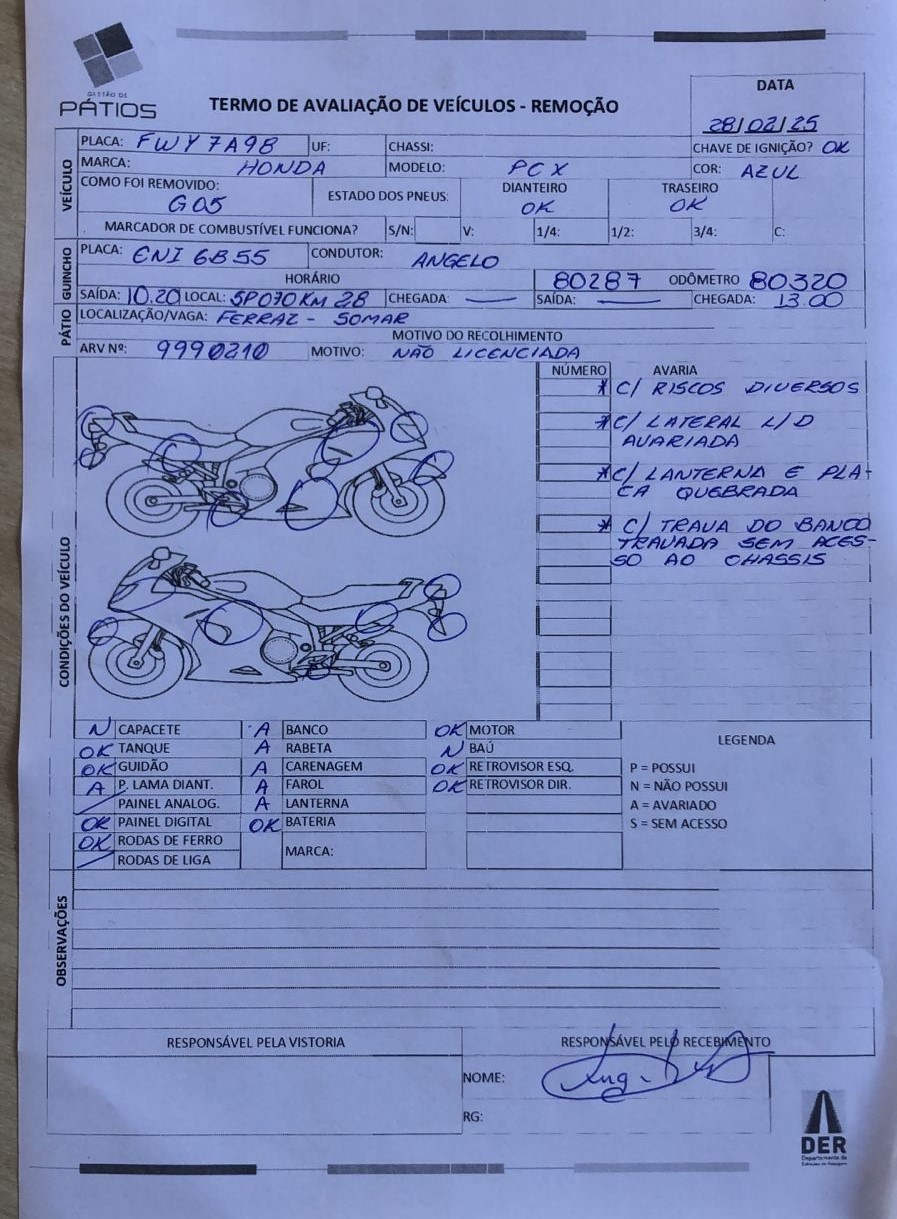 GESTÃO DE
PÁTIOS
TERMO DE AVALIAÇÃO DE VEÍCULOS - REMOÇÃO
DATA
28/02/25
VEÍCULO
PLACA: FWY7A98 UF: CHASSI: CHAVE DE IGNIÇÃO? OK
MARCA: HONDA MODELO: PCX COR: AZUL
COMO FOI REMOVIDO: G05 ESTADO DOS PNEUS: DIANTEIRO OK TRASEIRO OK
MARCADOR DE COMBUSTÍVEL FUNCIONA? S/N: V: 1/4: 1/2: 3/4: C:
GUINCHO
PLACA: ENI 6B55 CONDUTOR: ANGELO
HORÁRIO 80287 ODÔMETRO 80320
SAÍDA: 10.20 LOCAL: SP070 KM 28 CHEGADA: — SAÍDA: — CHEGADA: 13.00
PÁTIO
LOCALIZAÇÃO/VAGA: FERRAZ - SOMAR
MOTIVO DO RECOLHIMENTO
ARV Nº: 9990210 MOTIVO: NÃO LICENCIADA
CONDIÇÕES DO VEÍCULO
NÚMERO AVARIA
* C/ RISCOS DIVERSOS
* C/ LATERAL L/D
AVARIADA
* C/ LANTERNA E PLA-
CA QUEBRADA
* C/ TRAVA DO BANCO
TRAVADA SEM ACES-
SO AO CHASSIS
N CAPACETE A BANCO OK MOTOR
OK TANQUE A RABETA N BAÚ
OK GUIDÃO A CARENAGEM OK RETROVISOR ESQ.
A P. LAMA DIANT. A FAROL OK RETROVISOR DIR.
/ PAINEL ANALOG. A LANTERNA
OK PAINEL DIGITAL OK BATERIA
OK RODAS DE FERRO MARCA:
/ RODAS DE LIGA
LEGENDA
P = POSSUI
N = NÃO POSSUI
A = AVARIADO
S = SEM ACESSO
OBSERVAÇÕES
RESPONSÁVEL PELA VISTORIA RESPONSÁVEL PELO RECEBIMENTO
NOME:
RG:
DER
Departamento de
Estradas de Rodagem